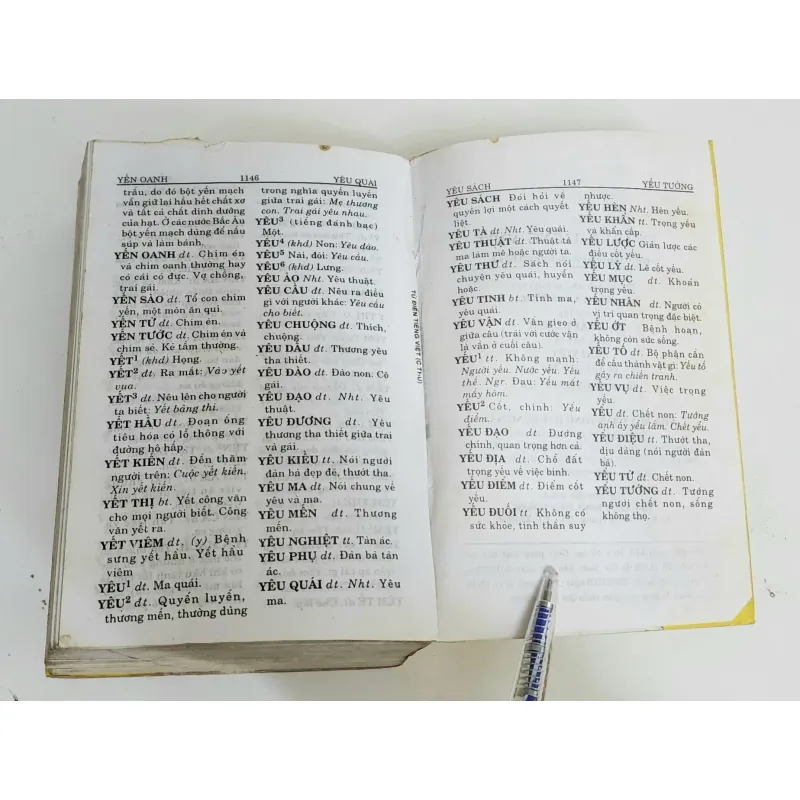 YẾN OANH 1146 YÊU QUÁI
trấu, do đó bột yến mạch
vẫn giữ lại hầu hết chất xơ
và tất cả chất dinh dưỡng
của hạt. Ở các nước Bắc Âu
bột yến mạch dùng để nấu
súp và làm bánh.
YẾN OANH dt. Chim én
và chim oanh thường hay
có cái có đực. Vợ chồng,
trai gái.
YẾN SÀO dt. Tổ con chim
yến, một món ăn quí.
YẾN TỬ dt. Chim én.
YẾN TƯỚC dt. Chim én và
chim sẻ. Kẻ tầm thường.
YẾT¹ (khd) Họng.
YẾT² dt. Ra mắt: Vào yết
vua.
YẾT³ dt. Nêu lên cho người
ta biết: Yết bảng thi.
YẾT HẦU dt. Đoạn ống
tiêu hóa có lỗ thông với
đường hô hấp.
YẾT KIẾN dt. Đến thăm
người trên: Cuộc yết kiến.
Xin yết kiến.
YẾT THỊ bt. Yết công văn
cho mọi người biết. Công
văn yết ra.
YẾT VIÊM dt. (y) Bệnh
sưng yết hầu. Yết hầu
viêm
YÊU¹ dt. Ma quái.
YÊU² dt. Quyến luyến,
thương mến, thường dùng
trong nghĩa quyến luyến
giữa trai gái: Mẹ thương
con. Trai gái yêu nhau.
YÊU³ (tiếng đánh bạc)
Một.
YÊU⁴ (khd) Non: Yêu đào.
YÊU⁵ Nài, đòi: Yêu cầu.
YÊU⁶ (khd) Lưng.
YÊU ẢO Nht. Yêu thuật.
YÊU CẦU dt. Nêu ra điều
gì với người khác: Yêu cầu
cho biết.
YÊU CHUỘNG dt. Thích,
chuộng.
YÊU DẤU dt. Thương yêu
tha thiết.
YÊU ĐÀO dt. Đào non. Cô
gái.
YÊU ĐẠO dt. Nht. Yêu
thuật.
YÊU ĐƯƠNG dt. Yêu
thương tha thiết giữa trai
và gái.
YÊU KIỀU tt. Nói người
đàn bà đẹp đẽ, thướt tha.
YÊU MA dt. Nói chung về
yêu và ma.
YÊU MẾN dt. Thương
mến.
YÊU NGHIỆT tt. Tàn ác.
YÊU PHỤ dt. Đàn bà tàn
ác.
YÊU QUÁI dt. Nht. Yêu
ma.
TỪ ĐIỂN TIẾNG VIỆT
YÊU SÁCH 1147 YỂU TƯỚNG
YÊU SÁCH Đòi hỏi về
quyền lợi một cách quyết
liệt.
YÊU TÀ dt. Nht. Yêu quái.
YÊU THUẬT dt. Thuật tà
ma làm mê hoặc người ta.
YÊU THƯ dt. Sách nói
chuyện yêu quái, huyền
hoặc.
YÊU TINH bt. Tinh ma,
yêu quái.
YÊU VẬN dt. Vần gieo ở
giữa câu (trái với cước vận
là vần ở cuối câu).
YẾU¹ tt. Không mạnh:
Người yếu. Nước yếu. Yếu
thế. Ngr. Đau: Yếu mất
mấy hôm.
YẾU² Cốt, chính: Yếu
điểm.
YẾU ĐẠO dt. Đường
chính, quan trọng hơn cả.
YẾU ĐỊA dt. Chỗ đất
trọng yếu về việc binh.
YẾU ĐIỂM dt. Điểm cốt
yếu.
YẾU ĐUỐI tt. Không có
sức khỏe, tinh thần suy
nhược.
YẾU HÈN Nht. Hèn yếu.
YẾU KHẨN tt. Trọng yếu
và khẩn cấp.
YẾU LƯỢC Giản lược các
điều cốt yếu.
YẾU LÝ dt. Lẽ cốt yếu.
YẾU MỤC dt. Khoản
trọng yếu.
YẾU NHÂN dt. Người có
vị trí quan trọng đặc biệt.
YẾU ỚT Bệnh hoạn,
không còn sức sống.
YẾU TỐ dt. Bộ phận cần
để cấu thành vật gì: Yếu tố
gây ra chiến tranh.
YẾU VỤ dt. Việc trọng
yếu.
YỂU dt. Chết non: Tướng
anh ấy yểu lắm. Chết yểu.
YỂU ĐIỆU tt. Thướt tha,
dịu dàng (nói người đàn
bà).
YỂU TỬ dt. Chết non.
YỂU TƯỚNG dt. Tướng
người chết non, sống
không thọ.